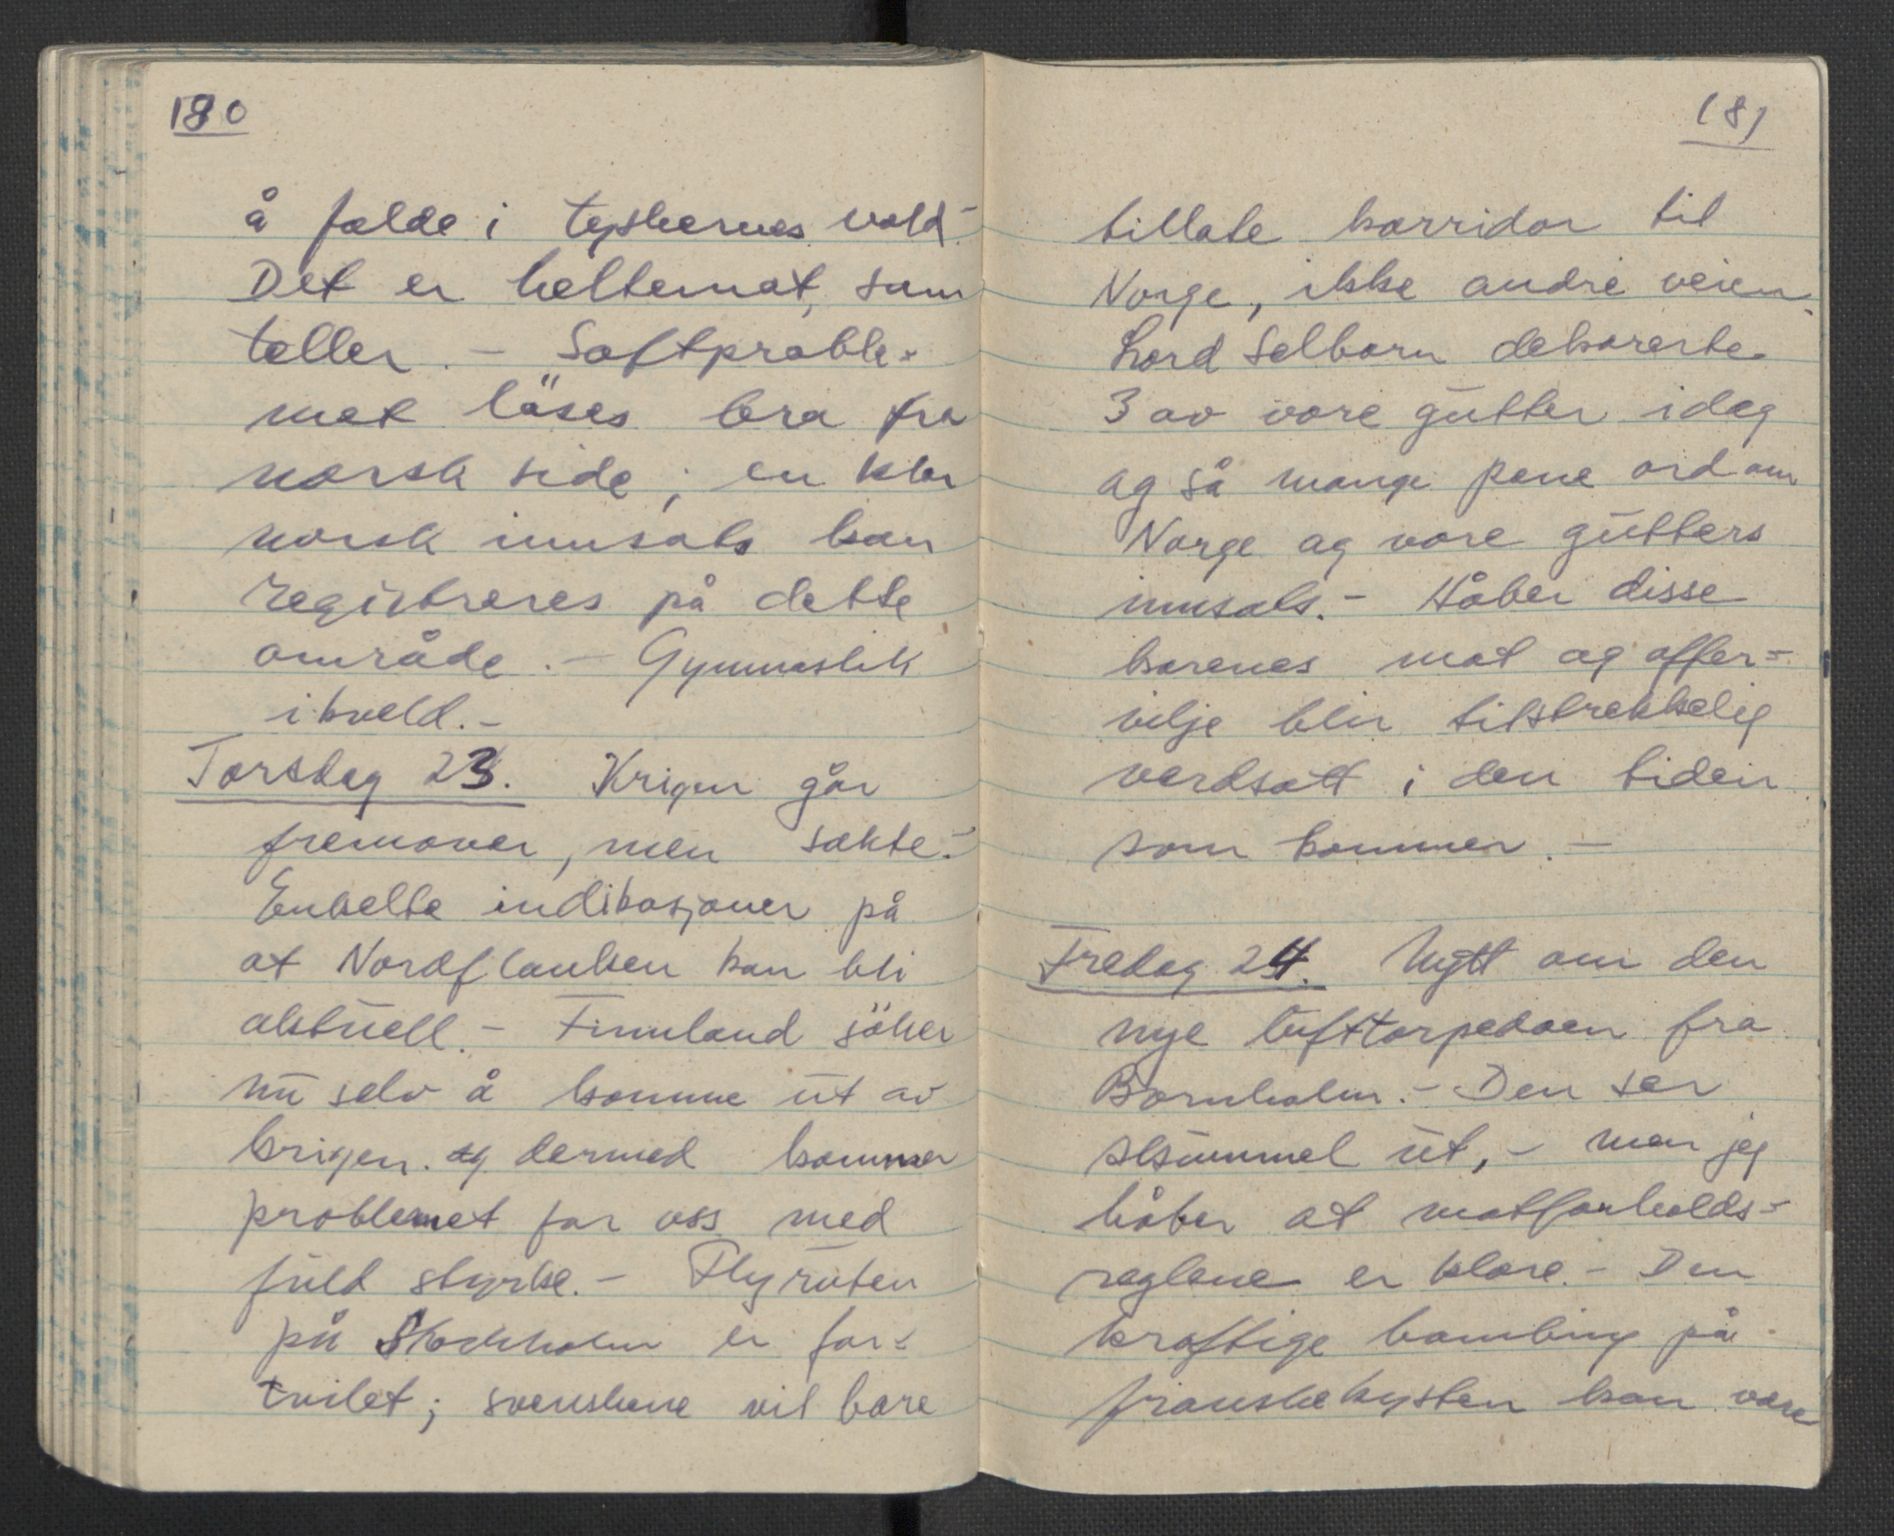 180
å falde i tyskernes vold.-
Det er heltemot, som
teller. - Saftproble-
met löses bra fra
norsk side; en klar
norsk innsats kan
registreres på dette
område. - Gymnastik
ikveld. -
Torsdag 23. Krigen går
fremover, men sakte.-
Enkelte indikasjoner på
at Nordflanken kan bli
aktuell. - Finnland söker
nu selv å komme ut av
krigen. og dermed kommer
problemet for oss med
fuld styrke. - Flyruten
på Stockholm er for-
tvilet; svenskene vil bare
181
tillate korridor til
Norge, ikke andre veien.
Lord Selborn dekorerte
3 av vore gutter idag
og så mange pene ord om
Norge og vore gutters
innsats. - Håber disse
karenes mot og offer-
vilje blir tilstrekkelig
verdsatt i den tiden
som kommer. -
Fredag 24. Nytt om den
nye lufttorpedoen fra
Bornholm. - Den ser
skummel ut, - men jeg
håber at motforholds-
reglene er klare. - Den
kraftige bombing på
franskekysten kan være